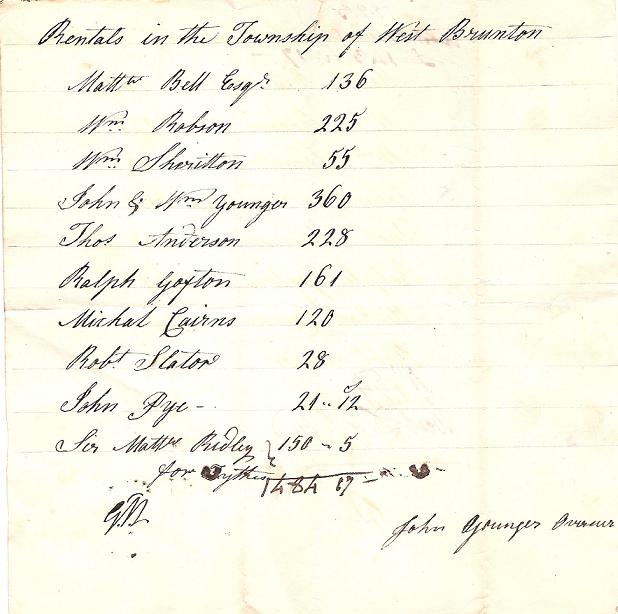 Rentals in the Township of West Brunton
Mattw Bell Esqr 136
Wm Robson 225
Wm Sheritton 55
John & Wm Younger 360
Thos Anderson 228
Ralph Goxton 161
Michal Cairns 120
Robt Slator 28
John Pye - 21 .. 12
Sir Mattw Ridley } 150 - 5
for Tythes
1484 17 -
John Younger Overseer